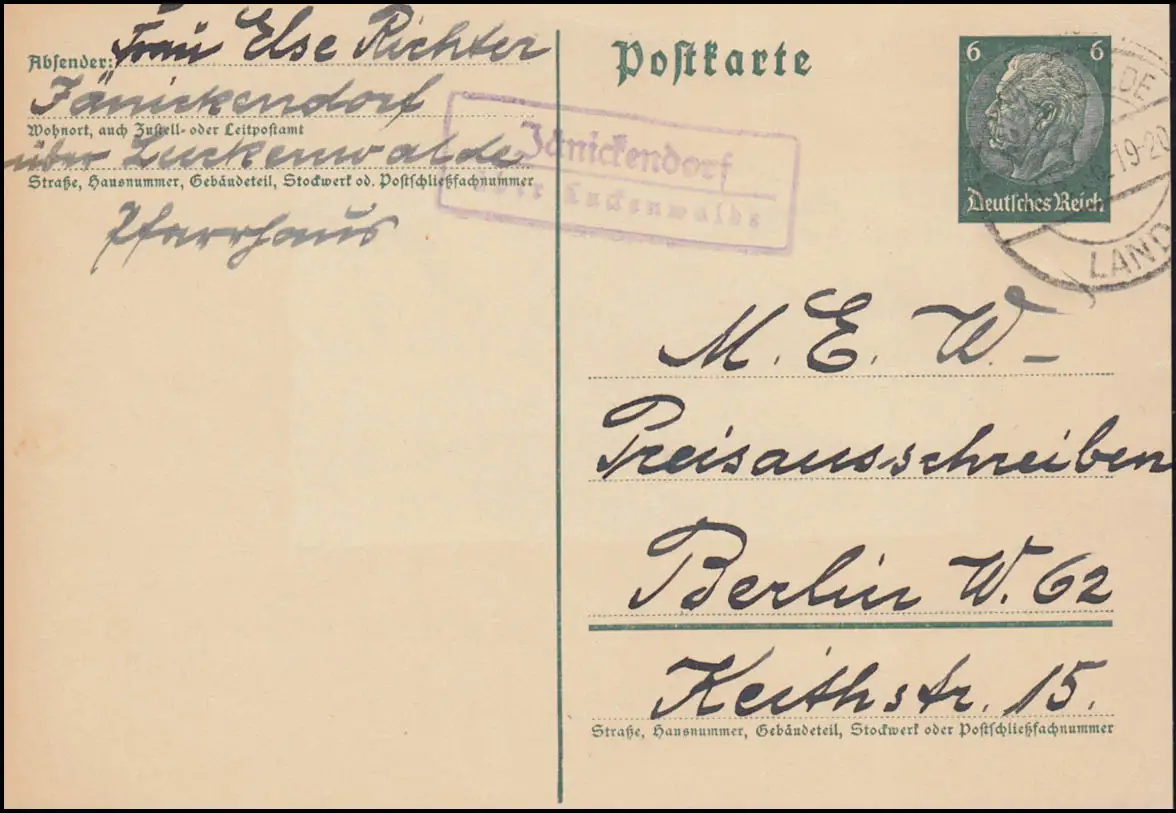 Absender: Frau Else Richter
Jänickendorf
Wohnort, auch Zustell- oder Leitpostamt
über Luckenwalde
Straße, Hausnummer, Gebäudeteil, Stockwerk od. Postschließfachnummer
Pfarrhaus
Postkarte
Jänickendorf
über Luckenwalde
6 6
Deutsches Reich
DE
19-20
LAND
M. E. W. –
Preisausschreiben
Berlin W. 62
Keithstr. 15.
Straße, Hausnummer, Gebäudeteil, Stockwerk oder Postschließfachnummer